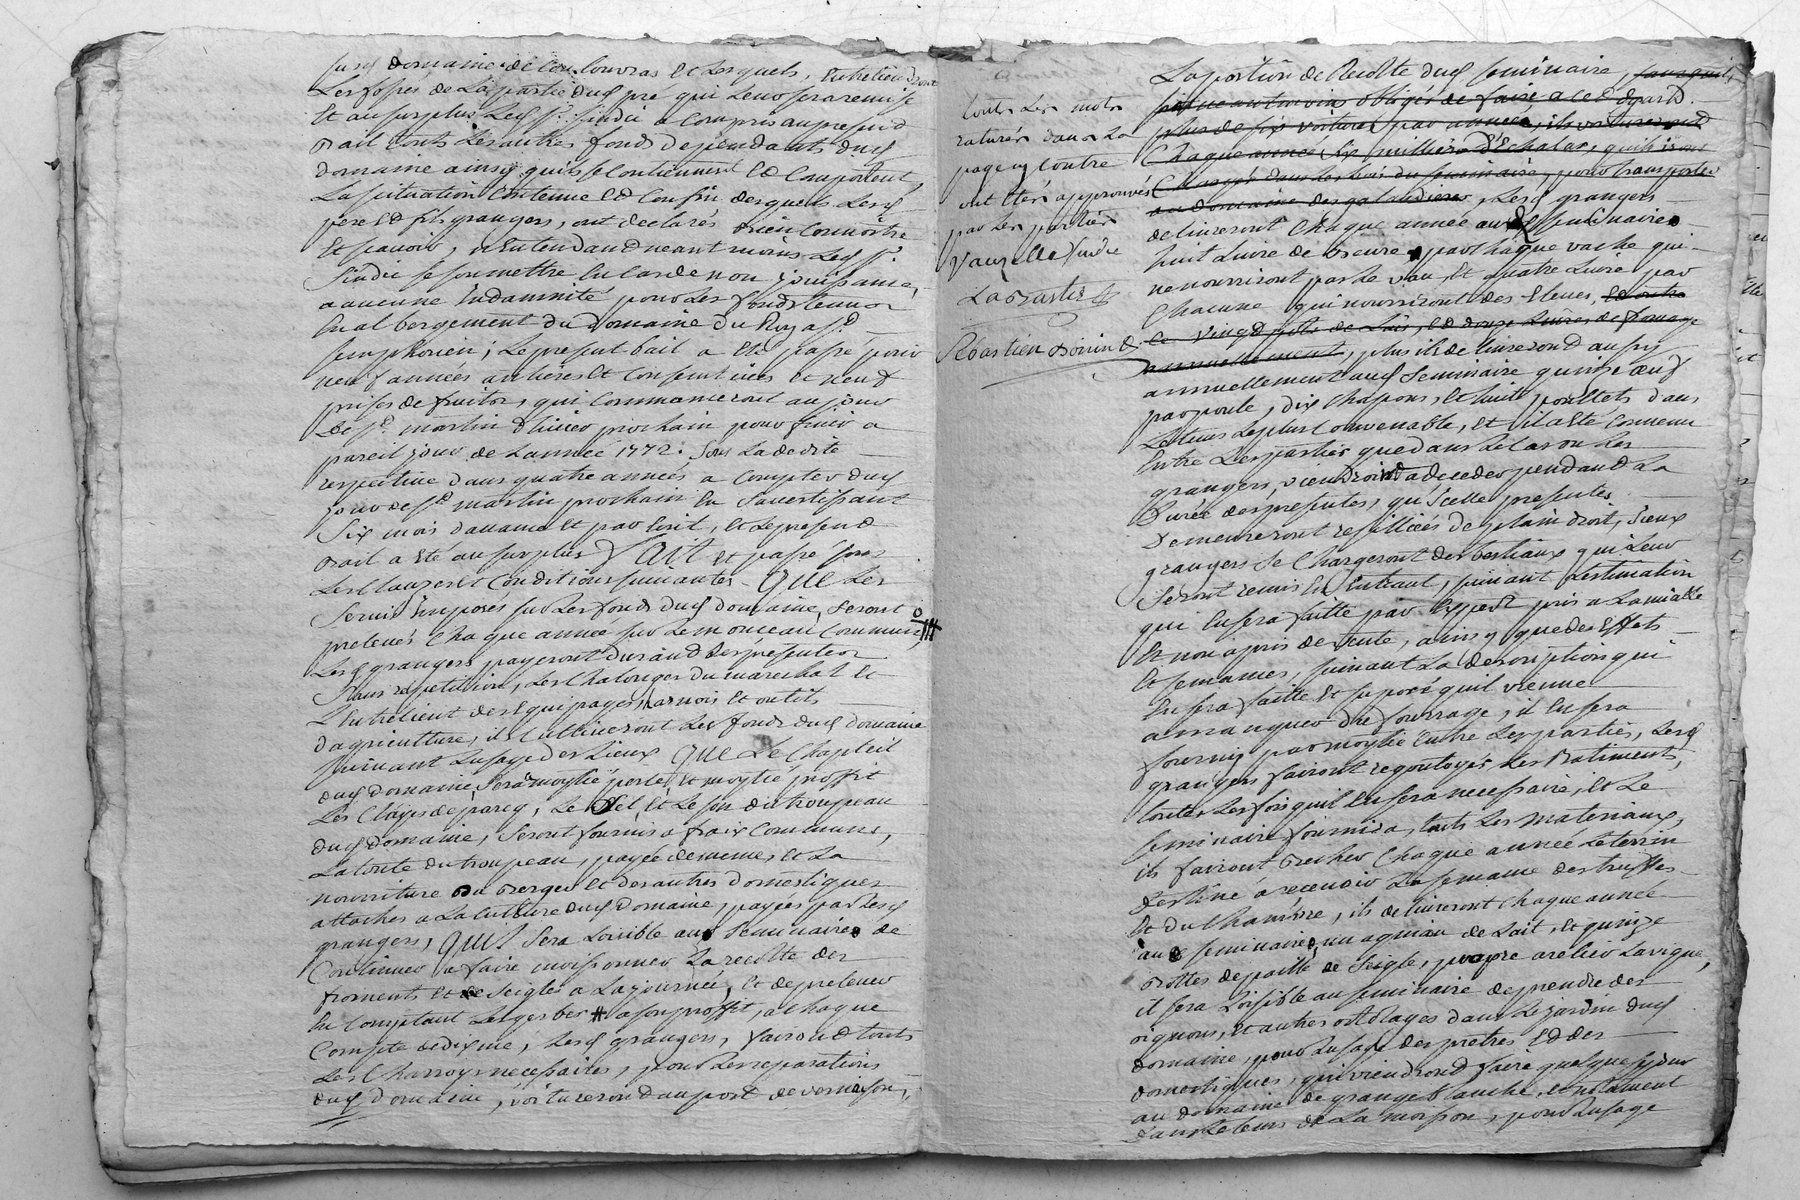 susd domaine de Coulouvras et Lesquels, Entretiendront
Les fossés de La partie dud pré qui Leur sera remise
Et au surplus Led Sr. Sindic a Compris au present
Bail touts Les autres fonds dependants dud
domaine ainsy qu'ils se Contiennent Et Comportent
La situation Contenue Et Confin desquels Lesd
pere Et fils grangers, ont declarés bien Connoitre
Et savoir, n'Entendant neantmoins Led Sr.
Sindic se soumettre En Cas de non jouissance,
a aucune Indamnité pour Les fonds tenus
En albergement du Domaine du Roy a St.
simphorien; Le present bail a Eté passé pour
neuf années antieres Et Consecutives Et neuf
prises de fruits, qui Commanceront au jour
de St. martin d'hiver prochain pour finir a
pareil jour de L'année 1772. sous La dedite
respective dans quatre années a Compter dud
jour de St. martin prochain En s'avertissant
Six mois d'avance Et par Ecrit, Et Le present
Bail a Eté au surplus fait Et passé sous
Les Clauzes Et Conditions suivantes. Que Les
Servis Imposés sur Les fonds dud domaine, seront
prelevés Chaque année sur Le monceau Commun,
Lesd grangers payeront durant Les presentes
sans repetition, Les Chalonges du mareshal Et
L'Entretient des Equipages, harnois Et outils
d'agriculture, ils Cultiveront Les fonds dud domaine
suivant L'usage des Lieux Que Le Chapteil
dud domaine, sera moytié perte, Et moytié proffit
Les Clayes de parcq, Le Sel, Et Le son du troupeau
dud domaine, Seront fournis a fraix Communs,
La tonte du troupeau, payée de meme, Et La
nourriture du Berger Et des autres domestiques
attachés a La Culture dud domaine, payées par Lesd
grangers, Qu'il Sera Loisible au seminaire de
Continuer a faire moissonner La recolte des
froments Et de seigles a La journée, Et de prelever
En Comptant Les gerbes a son proffit, a Chaque
Compte de dixme, Lesd grangers, fairont touts
Les Charroys necessaires, pour Les reparations
dud domaine, voitureront au port de vernaison,
touts Les mots
raturés dans La
page cy Contre
ont Etés approuvés
par Les parties
Vauzelle sindic
La Bastie
Sebastien Boirin
La portion de Recolte dud seminaire, sans qu'ils
puissent neantmoins obligés de faire, a Cet Egard
plus de six voitures par année, ils voitureront
Chaque année six milliers d'Echalas, qu'ils iront
Charger dans Les bois du seminaire, pour transporter
au domaine des galandieres, Lesd grangers
delivreront Chaque année aud seminaire
huit Livre de Beurre par Chaque vache qui
ne nourriront pas Le vau, Et quatre Livre par
Chacune qui nourriront des Eleves, Et outre
Ce vingt pots de Lait, Et douze Livres de fromage
annuellement, plus ils delivreront aussy
annuellement aud Seminaire quinze œufs
par poule, dix Chapons, Et huit poullets dans
Le tems Le plus Convenable, Et il a Eté Convenu
Entre Les parties que dans Le Cas ou Les
grangers, viendroint a deceder pendant La
Durée des presentes, qu'Icelles presentes
Demeureront resiliées de plain droit, Iceux
grangers se Chargeront des bestiaux qui Leur
Seront remis En Entrant, suivant L'estimation
qui En sera faitte par Expert pris a L'amiable
Et non a prix de vente, ainsy que des Effets
Et semances, suivant La description qui
En sera faitte Et suposé qu'il vienne
a manquer du fourrage, il En sera
fourny par moytié Entre Les parties, Lesd
grangers fairont regoutoyer Les Batiments,
toutes Les fois qu'il En sera necessaire, Et Le
seminaire fournira, touts Les materiaux,
ils fairont Becher Chaque année Le terrin
destiné a recevoir La semance des truffes
Et du Chanvre, ils delivreront Chaque année
au seminaire, un agniau de Lait, Et quinze
Bottes de paille de seigle, propre a relier La vigne,
il sera Loisible au seminaire de prendre des
oignons, Et autres ortolages dans Le jardin dud
domaine, pour L'usage des pretres Et des
domestiques, qui viendront faire quelque sejour
au domaine de grange blanche, notament
dans Le tems de La moisson, pour L'usage